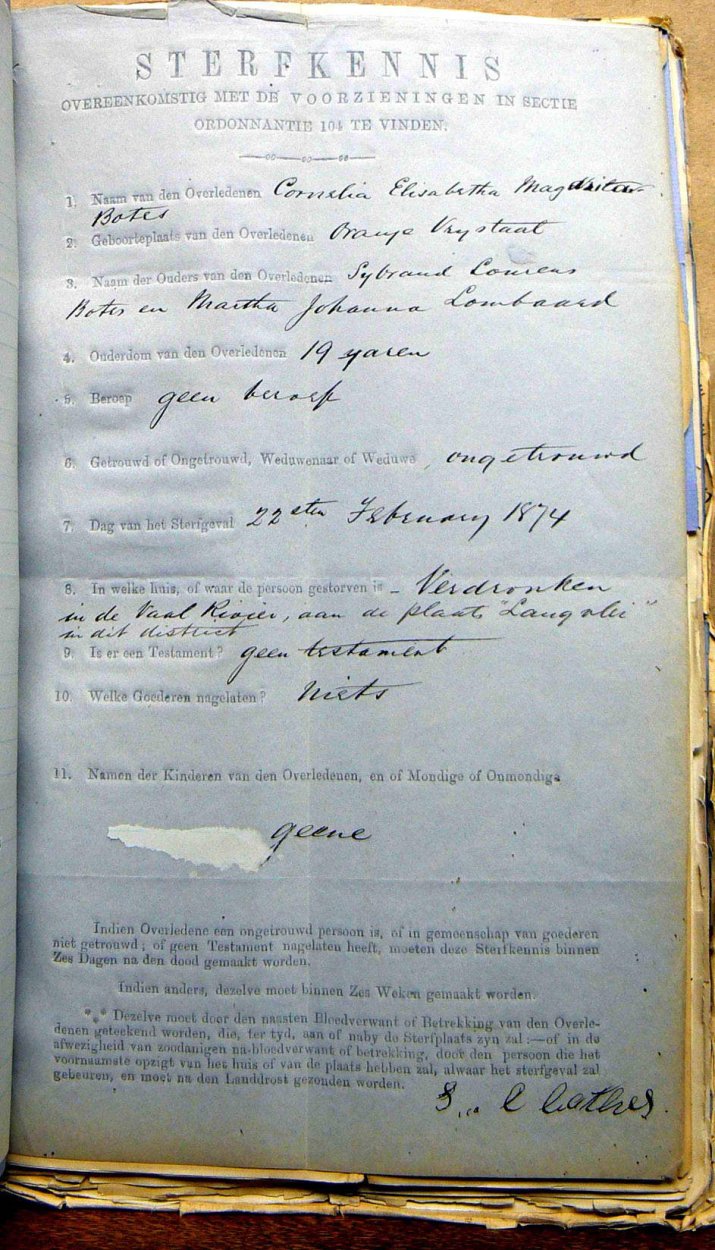 STERFKENNIS
OVEREENKOMSTIG MET DE VOORZIENINGEN IN SECTIE
ORDONNANTIE 104 TE VINDEN.
1. Naam van den Overledenen Cornelia Elisabetha
Botes
2. Geboorteplaats van den Overledenen Oranje Vrystaat
3. Naam der Ouders van den Overledenen Sybrand Lourens
Botes en Martha Johanna Lombaard
4. Ouderdom van den Overledenen 19 yaren
5. Beroep geen beroep
6. Getrouwd of Ongetrouwd, Weduwenaar of Weduwe, ongetrouwd
7. Dag van het Sterfgeval 22sten February 1874
8. In welke huis, of waar de persoon gestorven is – Verdronken
in de Vaal Rivier, aan de plaats "Langvlei"
in dit district
9. Is er een Testament? geen testament
10. Welke Goederen nagelaten? Niets
11. Namen der Kinderen van den Overledenen, en of Mondige of Onmondige
geene
Indien Overledene een ongetrouwd persoon is, of in gemeenschap van goederen
niet getrouwd; of geen Testament nagelaten heeft, moeten deze Sterfkennis binnen
Zes Dagen na den dood gemaakt worden.
Indien anders, dezelve moet binnen Zes Weken gemaakt worden.
*** Dezelve moet door den naasten Bloedverwant of Betrekking van den Overle-
denen geteekend worden, die, ter tyd, aan of naby de Sterfplaats zyn zal:—of in de
afwezigheid van zoodanigen na-bloedverwant of betrekking, door den persoon die het
voornaamste opzigt van het huis of van de plaats hebben zal, alwaar het sterfgeval zal
gebeuren, en moet na den Landdrost gezonden worden.